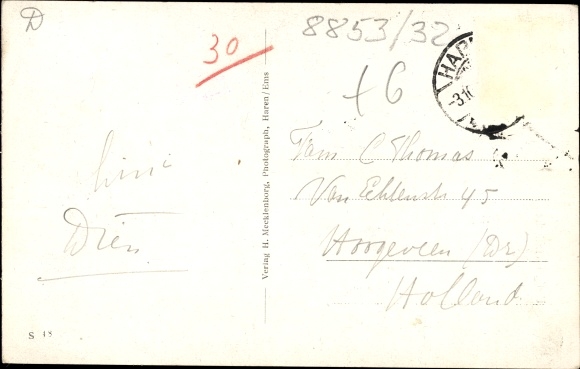 D
30
8853/32
+6
HAR
-3.10
Verlag H. Mecklenborg, Photograph, Haren/Ems
Fam C Thomas
Van Echtenstr 45
Hoogeveen (Dr)
Holland
Dien
S 18